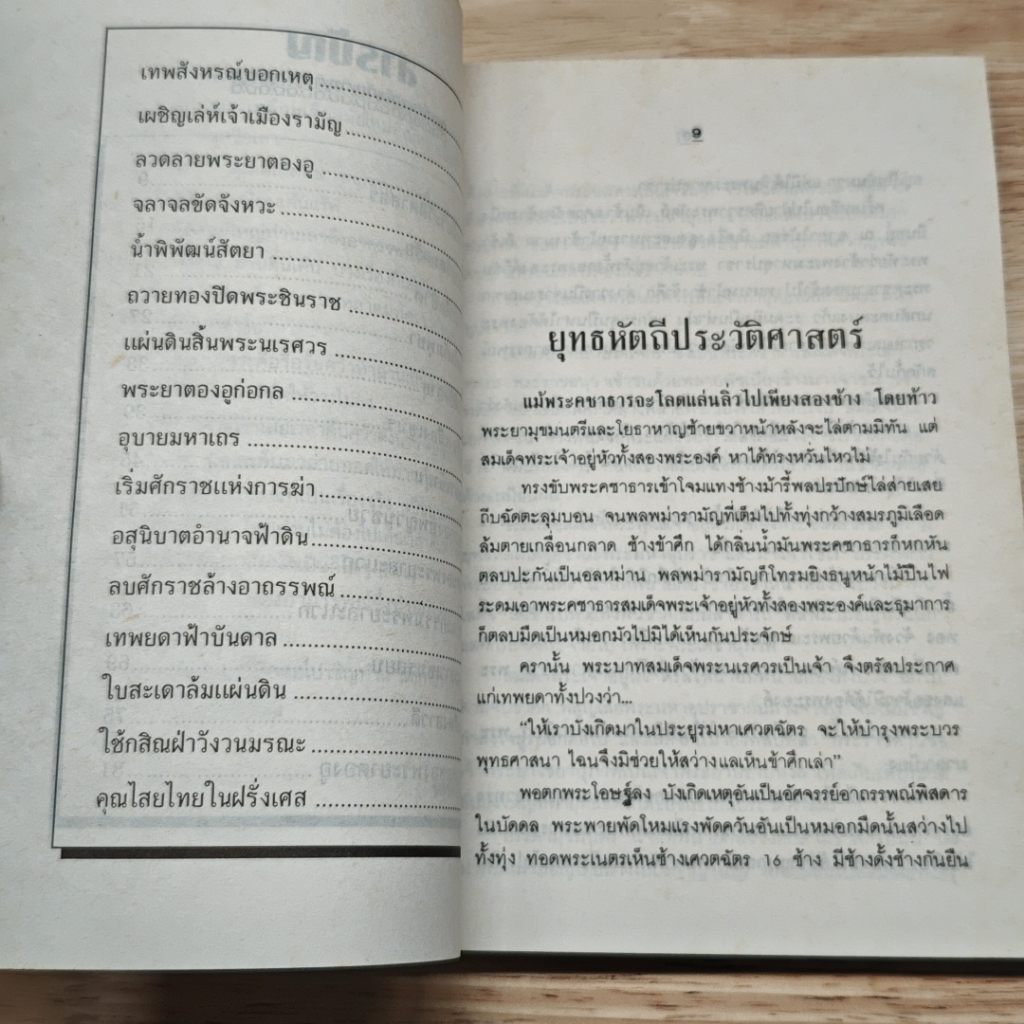 เทพสังหรณ์บอกเหตุ
เผชิญเล่ห์เจ้าเมืองรามัญ
ลวดลายพระยาตองอู
จลาจลขัดจังหวะ
น้ำพิพัฒน์สัตยา
ถวายทองปิดพระชินราช
แผ่นดินสิ้นพระนเรศวร
พระยาตองอูก่อกล
อุบายมหาเถร
เริ่มศักราชแห่งการฆ่า
อสุนิบาตอำนาจฟ้าดิน
ลบศักราชล้างอาถรรพณ์
เทพยดาฟ้าบันดาล
ใบสะเดาล้มแผ่นดิน
ใช้กสิณฝ่าวังวนมรณะ
คุณไสยไทยในฝรั่งเศส
๑
ยุทธหัตถีประวัติศาสตร์
แม้พระคชาธารจะโลดแล่นลิ่วไปเพียงสองช้าง โดยท้าว
พระยามุขมนตรีและโยธาหาญซ้ายขวาหน้าหลังจะไล่ตามมิทัน แต่
สมเด็จพระเจ้าอยู่หัวทั้งสองพระองค์ หาได้ทรงหวั่นไหวไม่
ทรงขับพระคชาธารเข้าโจมแทงช้างม้ารี้พลปรปักษ์ไล่ส่ายเสย
ถีบฉัดตะลุมบอน จนพลพม่ารามัญที่เต็มไปทั้งทุ่งกว้างสมรภูมิเลือด
ล้มตายเกลื่อนกลาด ช้างข้าศึก ได้กลิ่นน้ำมันพระคชาธารก็หกหัน
ตลบปะกันเป็นอลหม่าน พลพม่ารามัญก็โทรมยิงธนูหน้าไม้ปืนไฟ
ระดมเอาพระคชาธารสมเด็จพระเจ้าอยู่หัวทั้งสองพระองค์และธุมาการ
ก็ตลบมืดเป็นหมอกมัวไปมิได้เห็นกันประจักษ์
ครานั้น พระบาทสมเด็จพระนเรศวรเป็นเจ้า จึงตรัสประกาศ
แก่เทพยดาทั้งปวงว่า...
"ให้เราบังเกิดมาในประยูรมหาเศวตฉัตร จะให้บำรุงพระบวร
พุทธศาสนา ไฉนจึงมิช่วยให้สว่างแลเห็นข้าศึกเล่า"
พอตกพระโอษฐ์ลง บังเกิดเหตุอันเป็นอัศจรรย์อาถรรพณ์พิสดาร
ในบัดดล พระพายพัดโหมแรงพัดควันอันเป็นหมอกมืดนั้นสว่างไป
ทั้งทุ่ง ทอดพระเนตรเห็นช้างเศวตฉัตร 16 ช้าง มีช้างดั้งช้างกันยืน